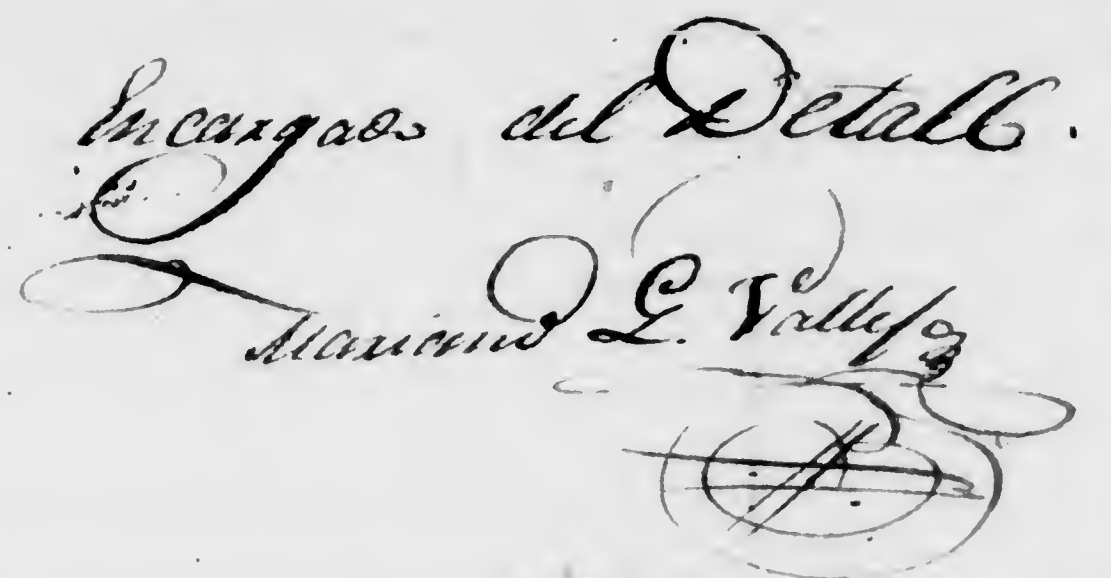 Encargado del Detall.
Mariano G. Vallejo